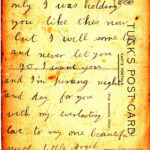 only I was holding
you like this now
but I will some time
and never let you
go. I want you
and I'm pining night
and day for you
with my everlasting
love to my one beautiful
sweet little angel
TUCK'S POST CARD
CARTE POSTALE